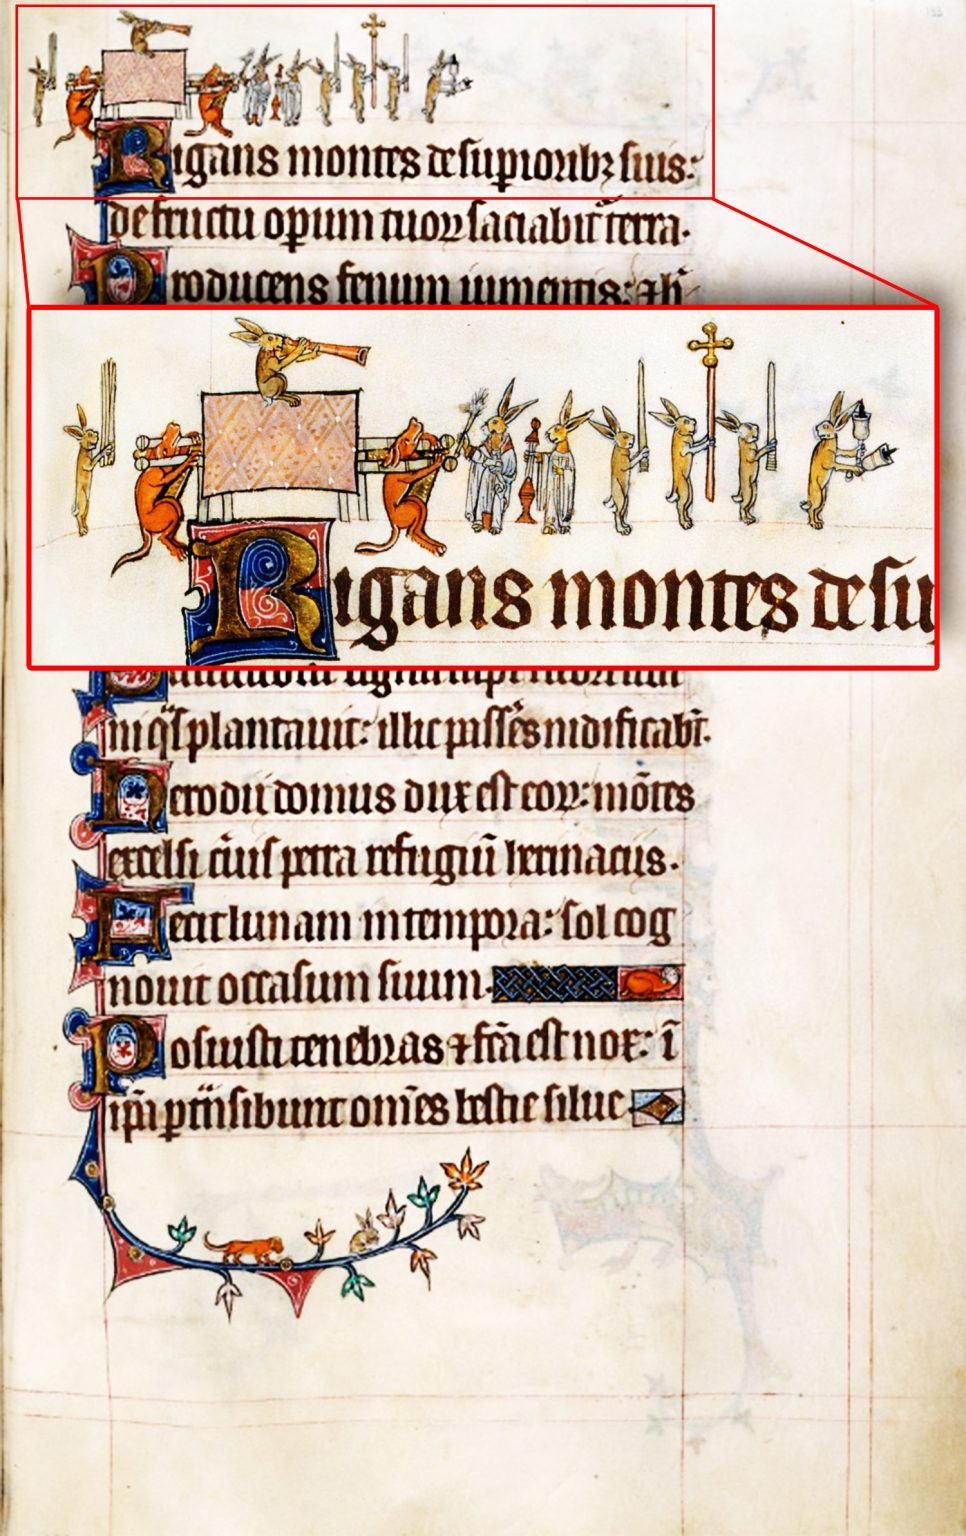 Rigans montes de supioribꝫ suis:
de fructu opum tuoꝝ saciabit̃ terra.
Producens fenum iumentis: ⁊ h̃
Rigans montes de su
in q̃s plantauit: illic passẽs nidificabt̃.
Herodii domus dux est eoꝝ: mõtes
excelsi c̃uis petra refugiũ herinaciis.
Fecit lunam in tempora: sol cog
nouit occasum suum.
Posuisti tenebras ⁊ fc̃a est nox: ĩ
ip̃a ꝑtñsibunt om̃es bestie silue